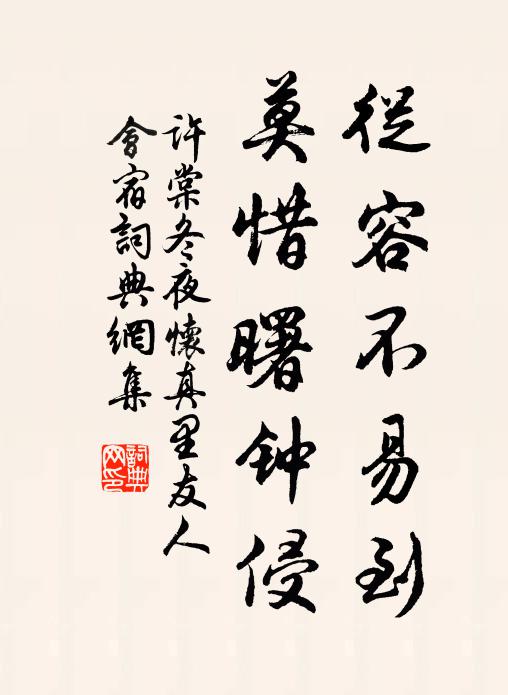 從容不易到
莫惜曙钟侵
許棠冬夜懷真里友人
會宿詞典網集
詞典
网印